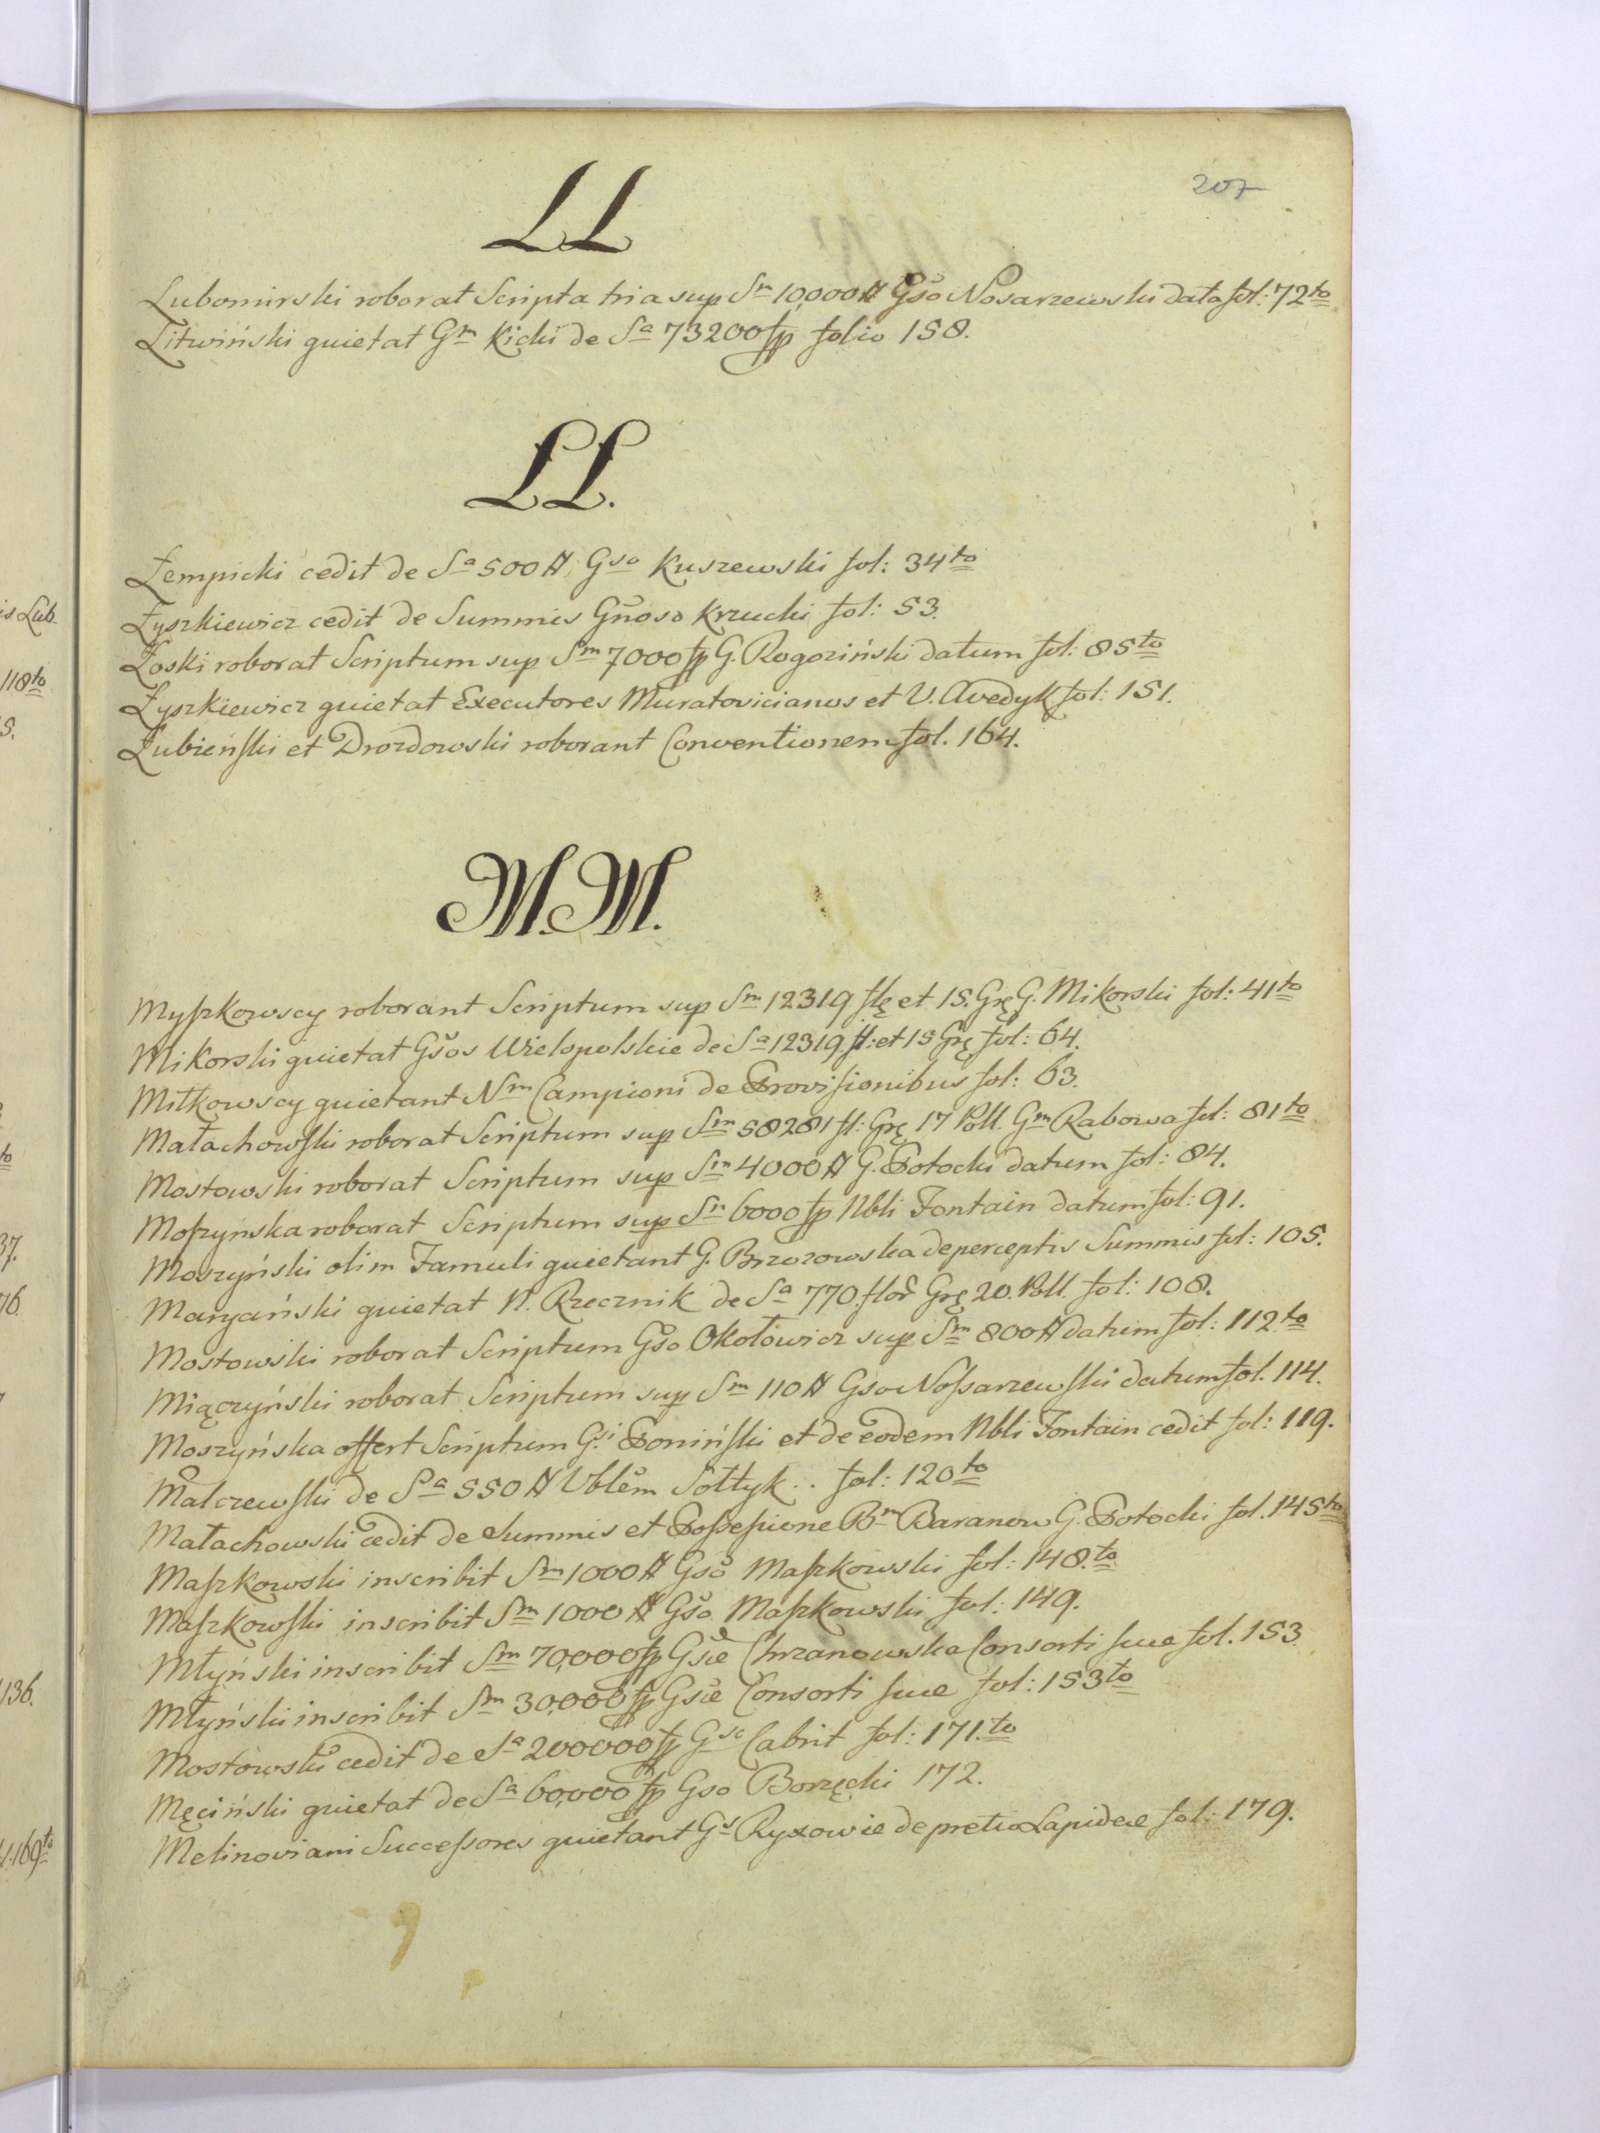 207
LL
Lubomirski roborat Scripta tria sup Sm 10,000 # Gso Nosarzewski data fol: 72to
Litwiński quietat Gm Kicki de Sa 73200 fp folio 158.
ŁŁ.
Łempicki cedit de Sa 500 # Gso Kuszewski fol: 34to
Łyszkiewicz cedit de Summis Gnoso Krzucki fol: 53.
Łoski roborat Scriptum sup Sm 7000 fp G. Rogoziński datum fol: 85to
Łyszkiewicz quietat Executores Muratovicianos et V. Avedyk fol: 151.
Łubieński et Drozdowski roborant Conventionem fol. 164.
M.M.
Myszkowscy roborant Scriptum sup Sm 12319 flę et 15. Grę G. Mikorski fol: 41to
Mikorski quietat Gsos Wielopolskie de Sa 12319 fl: et 15 Grę fol: 64.
Miłkowscy quietant Nm Campioni de Provisionibus fol: 63.
Małachowski roborat Scriptum sup Sm 58281 fl: Grę 17 Poll. Gm Rabowa fol: 81to
Mostowski roborat Scriptum sup Sm 4000 # G. Potocki datum fol: 84.
Moszynska roborat Scriptum sup Sm 6000 fp Nbli Fontain datum fol: 91.
Moszyński olim Famuli quietant G. Brzozowska de perceptis Summis fol: 105.
Maryański quietat N. Rzecznik de Sa 770. flor Grę 20. Poll. fol: 108.
Mostowski roborat Scriptum Gso Okołowicz sup Sm 800 # datum fol: 112to
Miączyński roborat Scriptum sup Sm 110 # Gso Nossarzewski datum fol. 114.
Moszyńska offert Scriptum Gsi Poniński et de eodem Nbli Fontain cedit fol: 119.
Malczewski de Sa 550 # Vblem Sołtyk .. fol: 120to
Małachowski cedit de Summis et Possessione Bm Baranow G. Potocki fol. 145to
Maszkowski inscribit Sm 1000 # Gso Maszkowski fol: 148.to
Maszkowski inscribit Sm 1000 # Gso Maszkowski fol: 149.
Młyński inscribit Sm 70,000 fp Gsæ Chrzanowska Consorti suæ fol. 153.
Młyński inscribit Sm 30,000 fp Gsæ Consorti suæ fol: 153to
Mostowski cedit de Sa 200000 fp Gso Cabrit fol: 171.to
Męciński quietat de Sa 60,000 fp Gso Borzęcki 172.
Melinoviani Successores quietant Gs Ryxowie de pretio Lapideæ fol: 179.